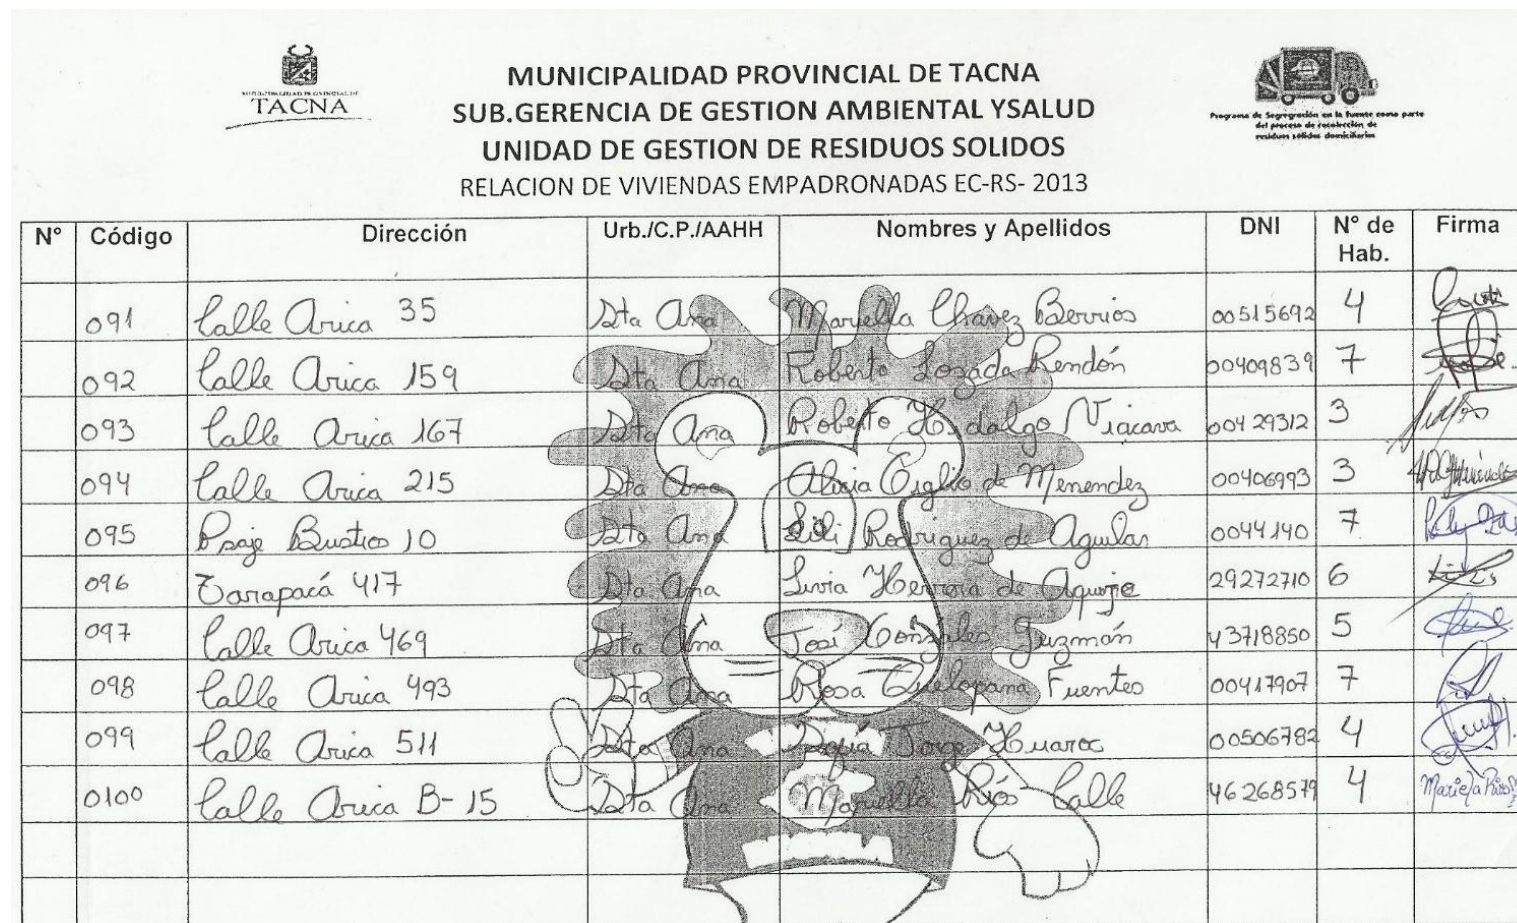 MUNICIPALIDAD PROVINCIAL DE
TACNA
MUNICIPALIDAD PROVINCIAL DE TACNA
SUB.GERENCIA DE GESTION AMBIENTAL YSALUD
UNIDAD DE GESTION DE RESIDUOS SOLIDOS
RELACION DE VIVIENDAS EMPADRONADAS EC-RS- 2013
Programa de Segregación en la fuente como parte
del proceso de recolección de
residuos sólidos domiciliarios
N° Código Dirección Urb./C.P./AAHH Nombres y Apellidos DNI N° de Hab. Firma
091 Calle Arica 35 Sta Ana Maryella Chavez Berrios 00515692 4
092 Calle Arica 159 Sta Ana Roberto Lozada Rendón 00409839 7
093 Calle Arica 167 Sta Ana Roberto Hidalgo Viacava 00429312 3
094 Calle Arica 215 Sta Ana Alicia Giglio de Menendez 00406993 3
095 Psaje Bustios 10 Sta Ana Lili Rodriguez de Aguilar 0044140 7
096 Tarapacá 417 Sta Ana Livia Herrera de Aquije 29272710 6
097 Calle Arica 469 Sta Ana José Gonzales Guzmán 43718850 5
098 Calle Arica 493 Sta Ana Rosa Quelopana Fuentes 00417907 7
099 Calle Arica 511 Sta Ana Jorge Huaroc 00506782 4
0100 Calle Arica B-15 Sta Ana Mariella Ríos Calle 46268579 4 Mariela Rios